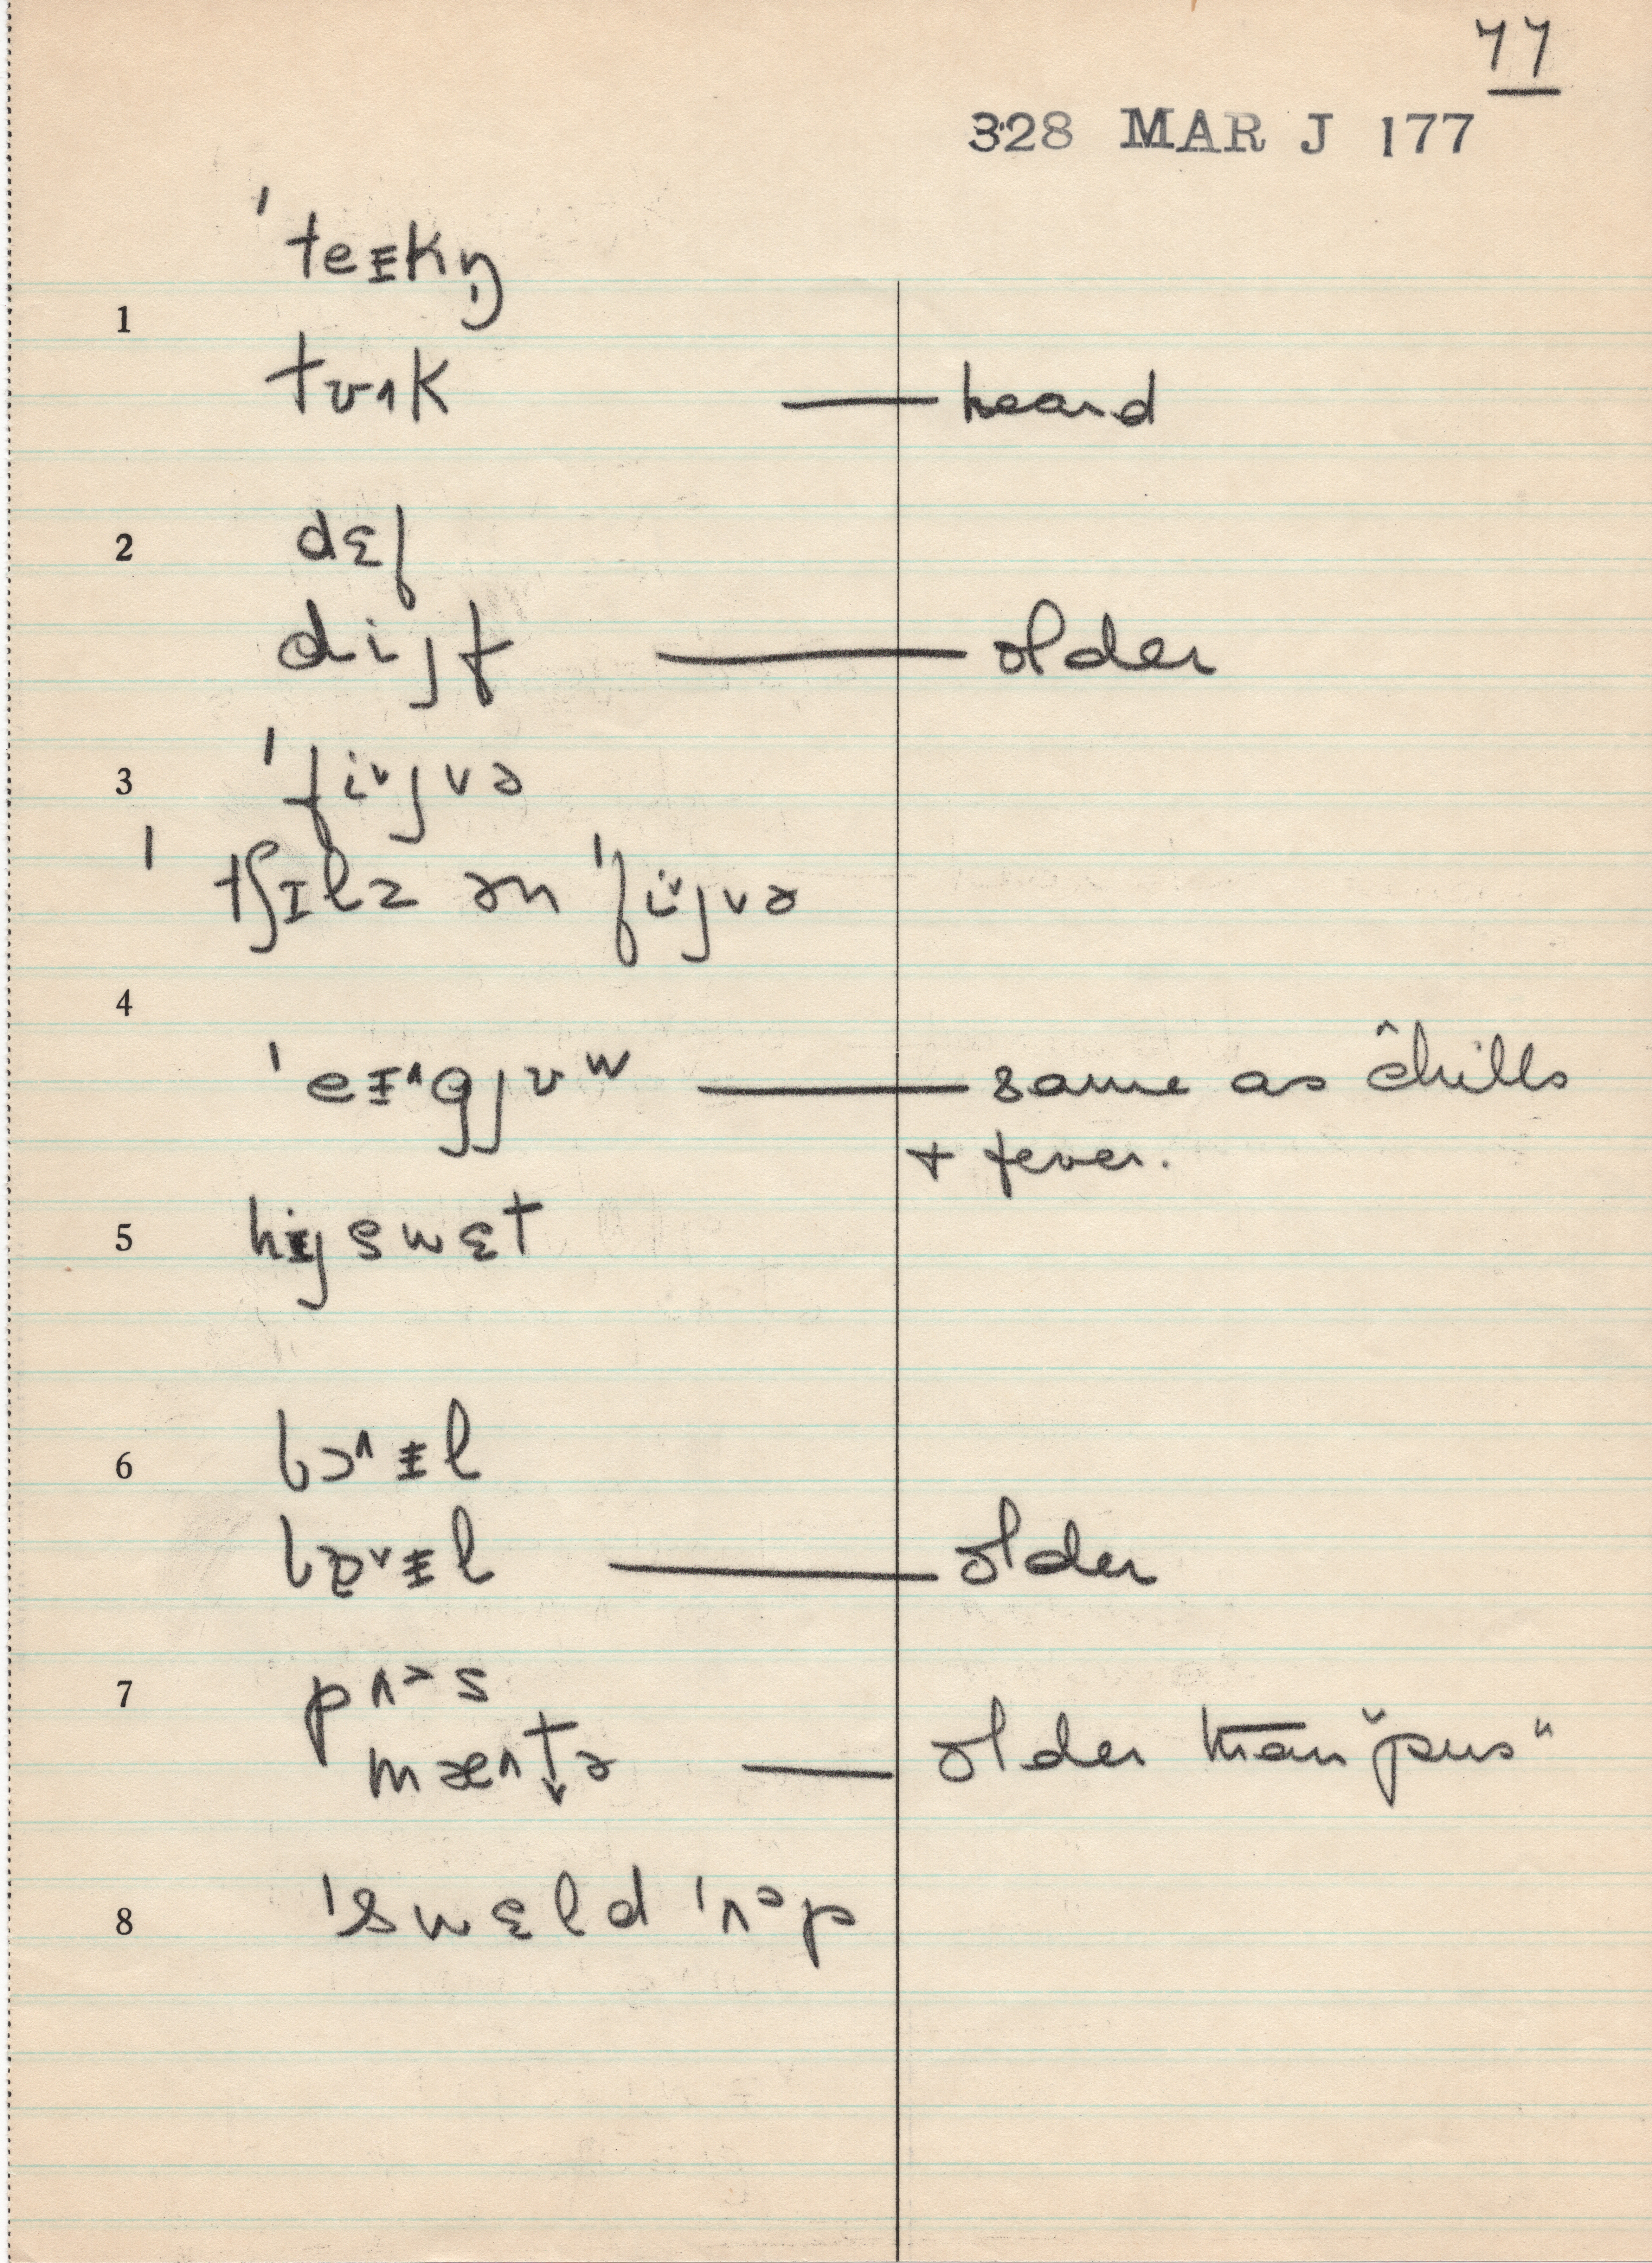 77
328 MAR J 177
ˈteᵻkŋ̩
1
tʊ˄k — heard
dɛf
2
dijf — older
3 ˈfi˅jvə
ˈtʃɪlz ən ˈfi˅jvə
4
ˈeᵻ˄gjʊʷ — same as chills
+ fever.
5 hijswɛt
6 bɔ˄ᵻl
bɒ˅ᵻl — older
7 pʌᵊs
mæntə — older than "pus"
8 ˈswɛld ˈʌᵊp